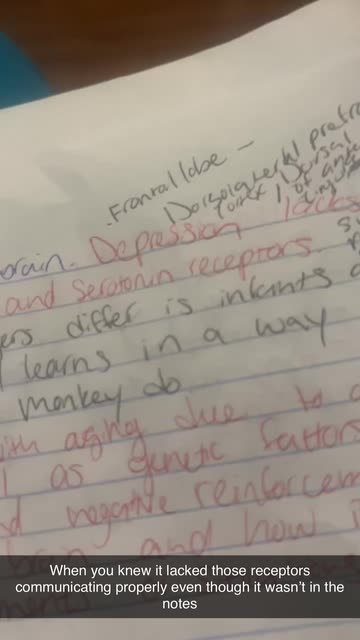 Frontal lobe -
Dorsolateral prefr
cortex, Dorsal
of ante
brain. Depression lacks
and serotonin receptors.
ers differ is infants
learns in a way
monkey do
with aging due to
as genetic factors
negative reinforcem
and how
When you knew it lacked those receptors
communicating properly even though it wasn't in the
notes